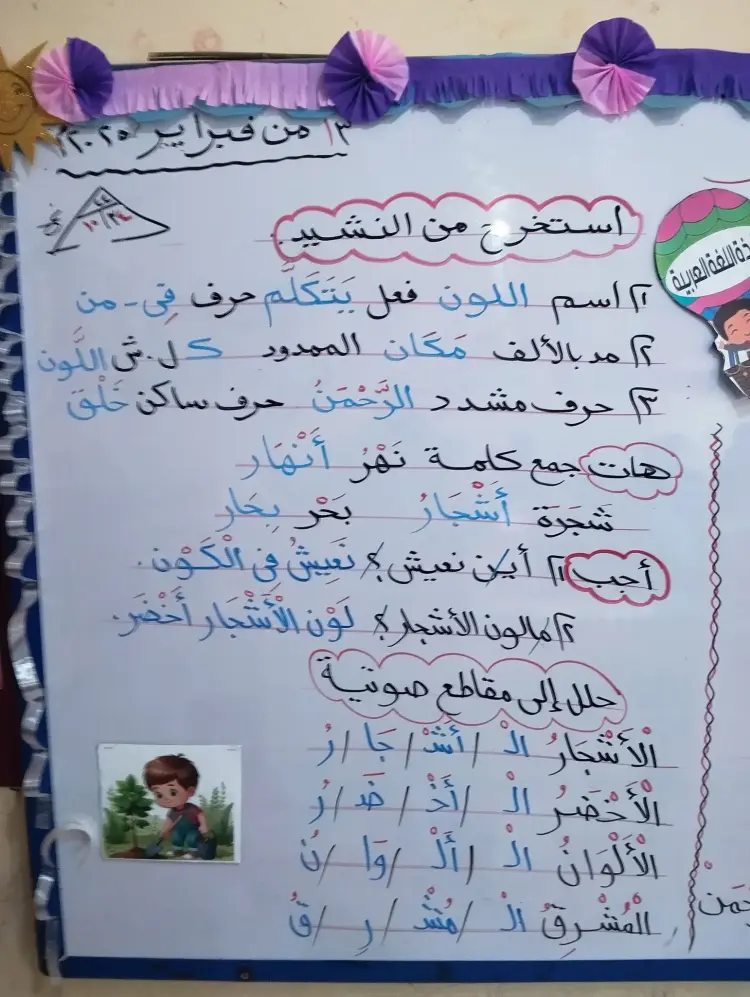 ١٣ من فبراير ٢٠٢٥م
استخرج من النشيد.
١) اسم اللون فعل يَتَكَلَّم حرف فِي - من
٢) مد بالألف مَكَان الممدود ك ل. ش اللَّون
٣) حرف مشدد الرَّحْمَنُ حرف ساكن خَلْق
هات جمع كلمة نَهْرُ أَنْهَار
شَجَرَة أَشْجَارُ بَحْر بِحَار
أجب ١) أين نعيش؟ نَعِيشُ فِى الْكَوْن.
٢) مالون الأشجار؟ لَوْن الْأَشْجَار أَخْضَر.
حلل إلى مقاطع صوتية
الْأَشْجَارُ الْـ / أَشْـ / جَا / رُ
الْأَخْضَرُ الْـ / أَخْـ / ضَـ / رُ
الْأَلْوَانُ الْـ / أَلْـ / وَا / نُ
الْمُشْرِقُ الْـ / مُشْـ / رِ / قُ
اللغة العربية